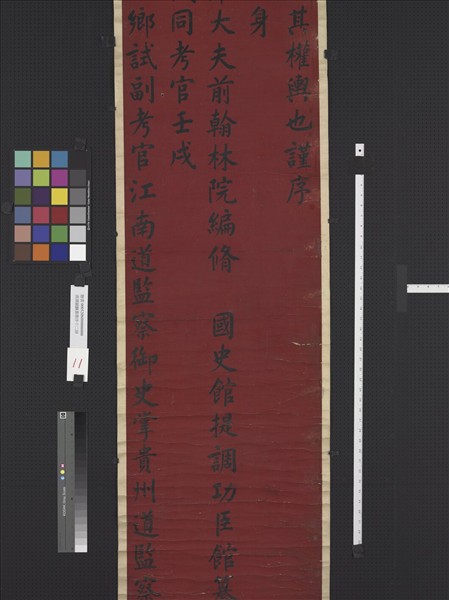 其權輿也謹序
身
大夫前翰林院編脩　國史館提調功臣館纂
同考官壬戌
鄉試副考官江南道監察御史掌貴州道監察
11